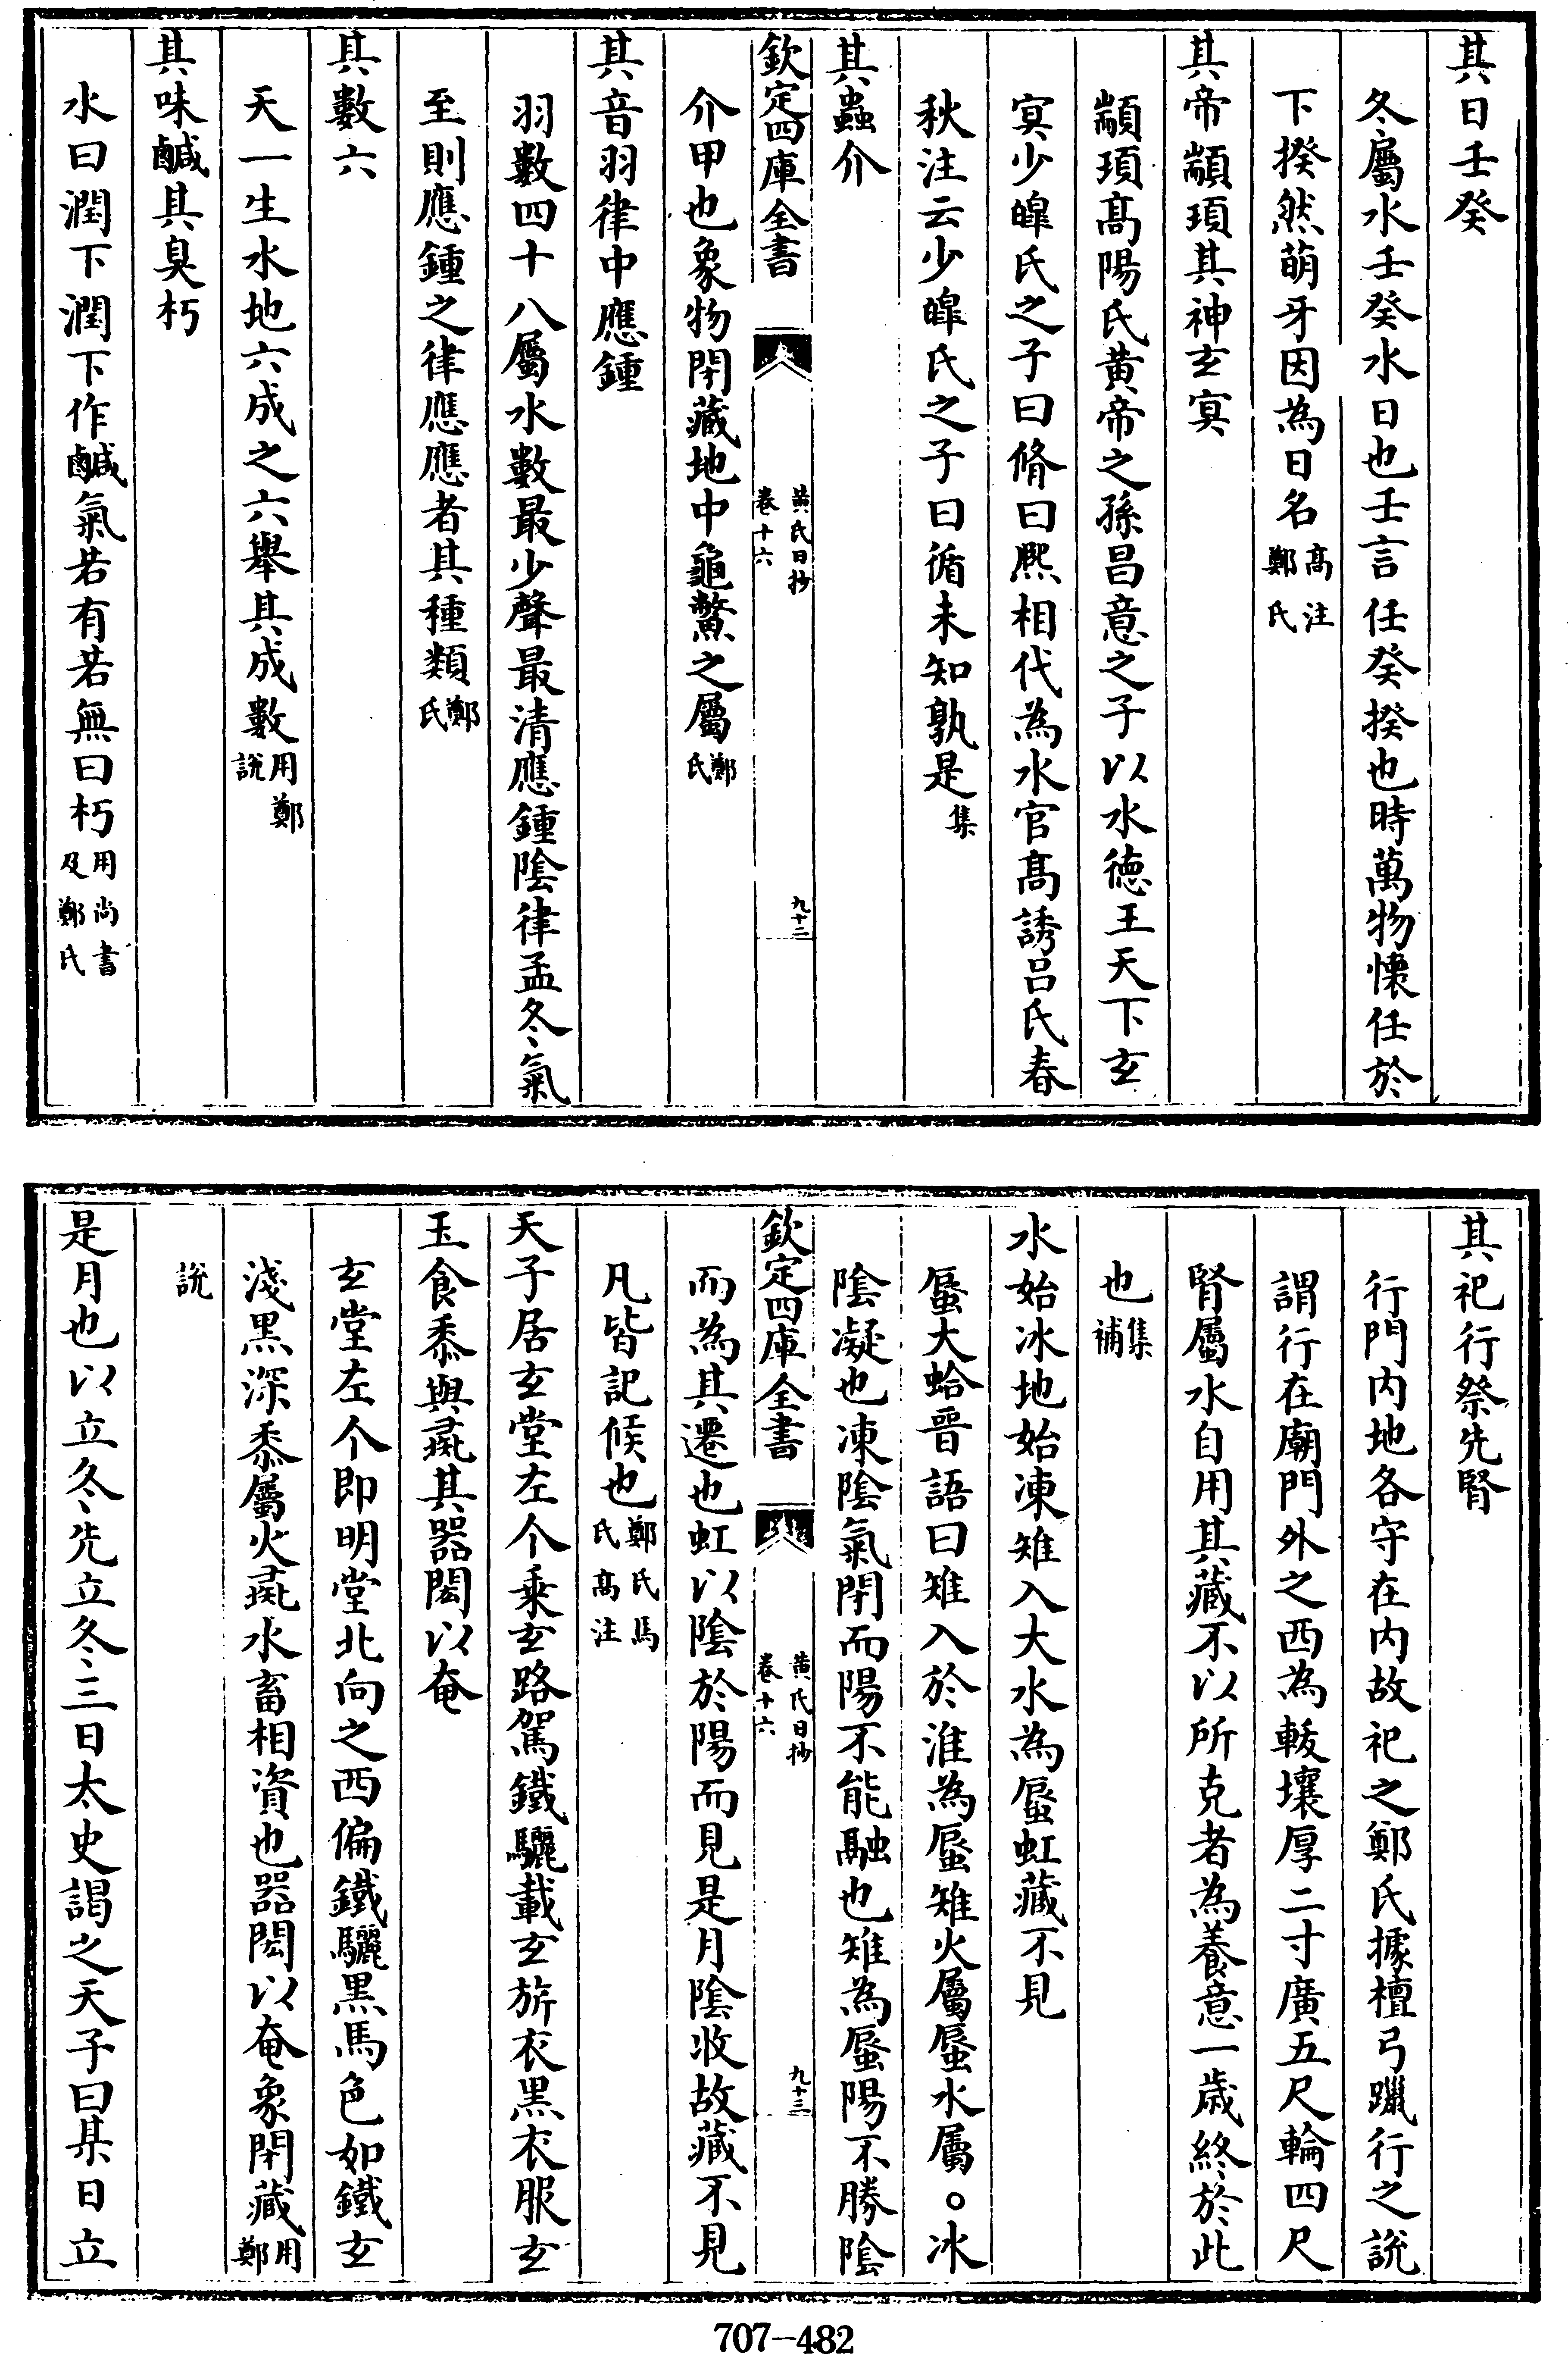 其日壬癸
冬屬水壬癸水日也壬言任癸揆也時萬物懷任於
下揆然萌牙因為日名高注鄭氏
其帝顓頊其神玄冥
顓頊髙陽氏黄帝之孫昌意之子以水徳王天下玄
冥少皥氏之子曰脩曰熙相代為水官髙誘吕氏春
秋注云少皥氏之子曰循未知孰是集
其蟲介
欽定四庫全書
黄氏日抄
卷十六
九十二
介甲也象物閉藏地中龜鼈之屬鄭氏
其音羽律中應鍾
羽數四十八屬水數最少聲最清應鍾隂律孟冬氣
至則應鍾之律應應者其種類鄭氏
其數六
天一生水地六成之六舉其成數用鄭說
其味鹹其臭朽
水曰潤下潤下作鹹氣若有若無曰朽用尚書及鄭氏
其祀行祭先腎
行門内地各守在内故祀之鄭氏據檀弓躐行之説
謂行在廟門外之西為軷壤厚二寸廣五尺輪四尺
腎屬水自用其藏不以所克者為養意一歲終於此
也集補
水始冰地始凍雉入大水為蜃虹藏不見
蜃大蛤晉語曰雉入於淮為蜃雉火屬蜃水屬○冰
隂凝也凍隂氣閉而陽不能融也雉為蜃陽不勝隂
欽定四庫全書
黄氏日抄
卷十六
九十三
而為其遷也虹以隂於陽而見是月隂收故藏不見
凡皆記候也鄭氏馬氏高注
天子居玄堂左个乘玄路駕鐵驪載玄旂衣黑衣服玄
玉食黍與彘其器閎以奄
玄堂左个即明堂北向之西偏鐵驪黑馬色如鐵玄
淺黑深黍屬火彘水畜相資也器閎以奄象閉藏用鄭
說
是月也以立冬先立冬三日太史謁之天子曰某日立
707-482